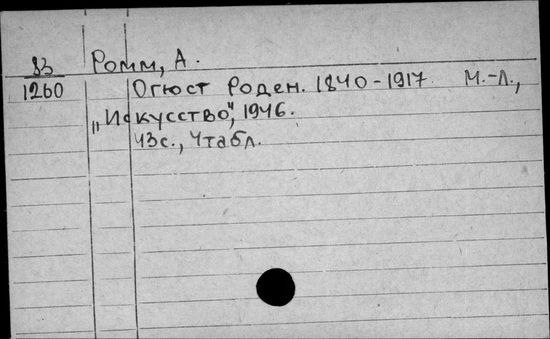 83 Ромм, А.
1260 Огюст Роден. 1840-1917 М.-Л.,
„Искусство", 1946.
43с., 4табл.